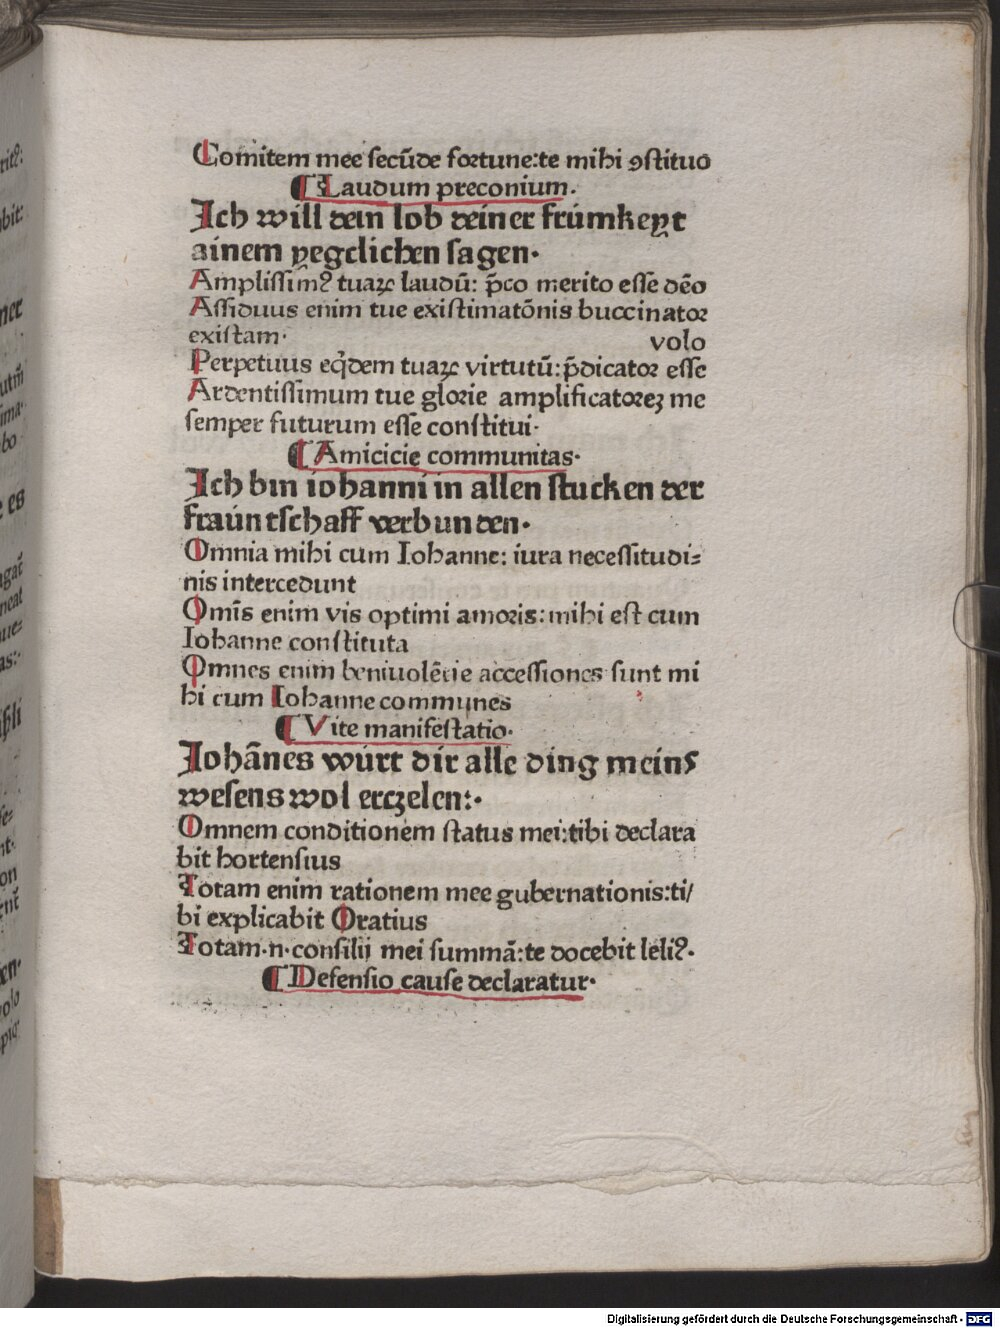 Comitem mee secūde fortune:te mihi ꝯstituo
¶ Laudum preconium.
Ich will dein lob deiner frúmkeyt
ainem yegclichen sagen.
Amplissimꝰ tuaꝝ laudū: p̄co merito esse dēo
Assiduus enim tue existimatōnis buccinator
existam. volo
Perpetuus eq̇dem tuaꝝ virtutū:p̄dicator esse
Ardentissimum tue glorie amplificatoreꝫ me
semper futurum esse constitui.
¶ Amicicie communitas.
Ich bin iohanni in allen stucken der
fraúntschaff verbunden.
Omnia mihi cum Iohanne: iura necessitudi=
nis intercedunt
Om̄is enim vis optimi amoris:mihi est cum
Iohanne constituta
Omnes enim beniuolētie accessiones sunt mi
hi cum Iohanne communes
¶ Vite manifestatio.
Iohānes würt dir alle ding meins
wesens wol erczelen:.
Omnem conditionem status mei:tibi declara
bit hortensius
Totam enim rationem mee gubernationis:ti/
bi explicabit Oratius
Totam.n.consilij mei summā:te docebit leliꝰ.
¶ Defensio cause declaratur.
Digitalisierung gefördert durch die Deutsche Forschungsgemeinschaft - DFG